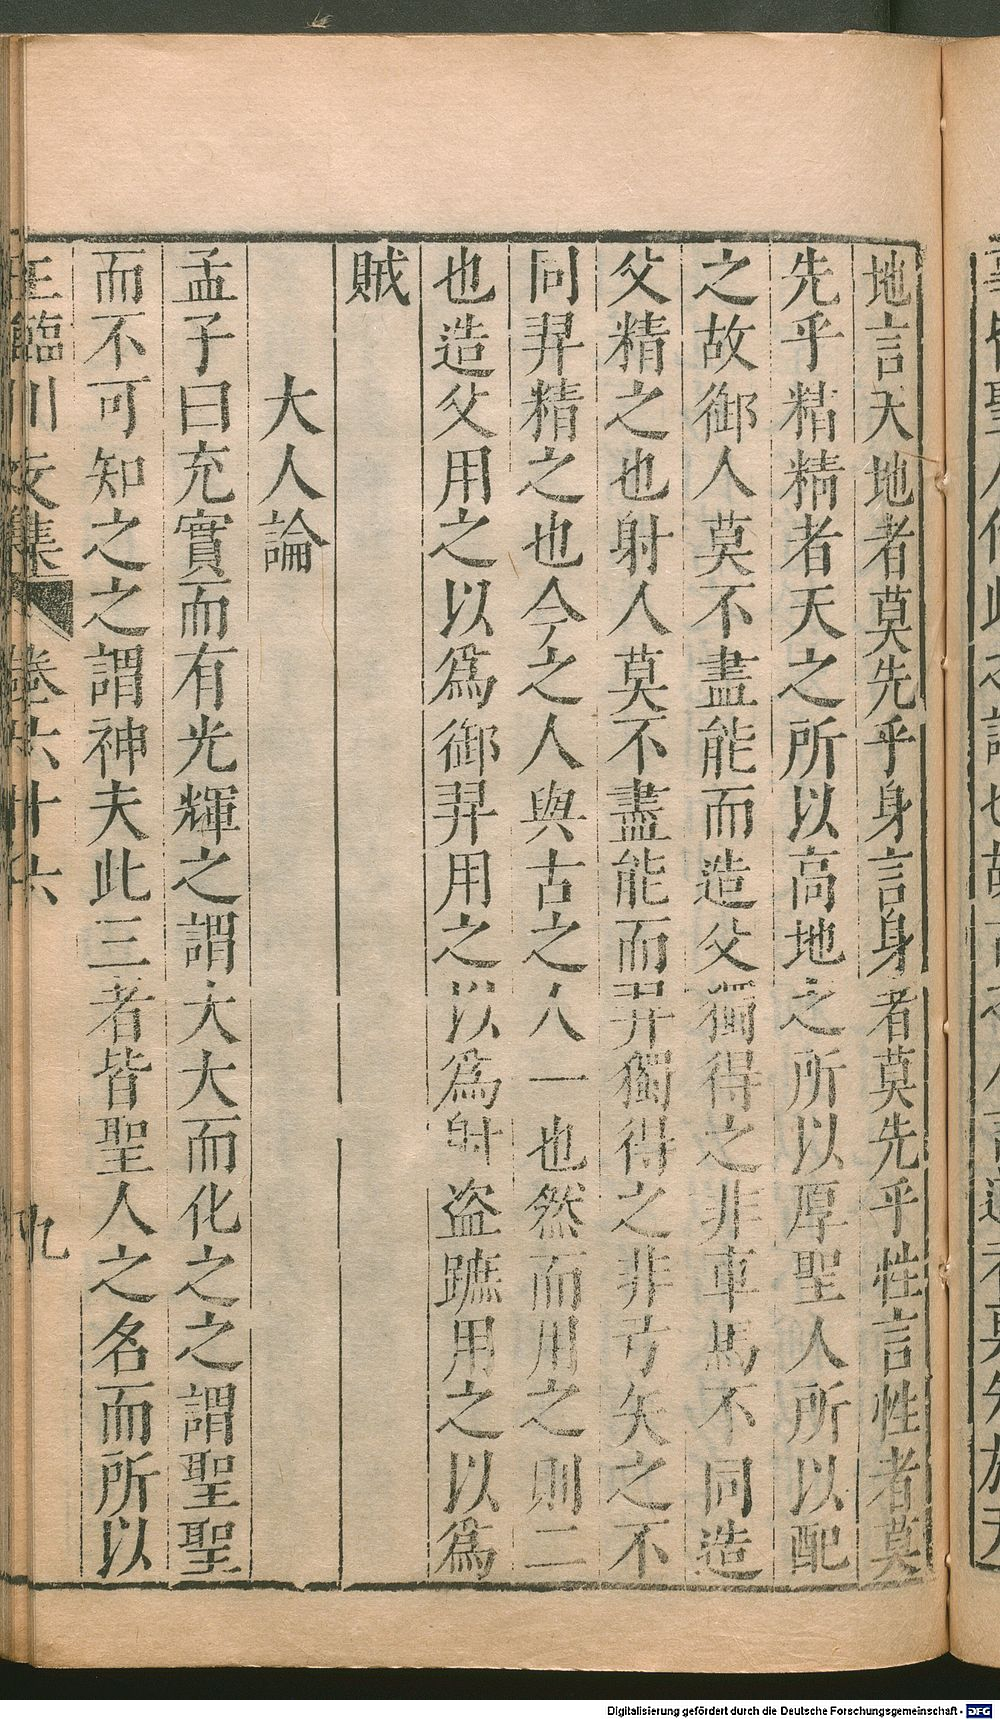 地言天地者莫先乎身言身者莫先乎性言性者莫
先乎精精者天之所以高地之所以厚聖人所以配
之故御人莫不盡能而造父獨得之非車馬不同造
父精之也射人莫不盡能而羿獨得之非弓矢之不
同羿精之也今之人與古之人一也然而用之則二
也造父用之以爲御羿用之以爲射盗蹠用之以爲
賊
大人論
孟子曰充實而有光輝之謂大大而化之之謂聖聖
而不可知之之謂神夫此三者皆聖人之名而所以
王臨川文集 卷六十六 九
Digitalisierung gefördert durch die Deutsche Forschungsgemeinschaft - DFG